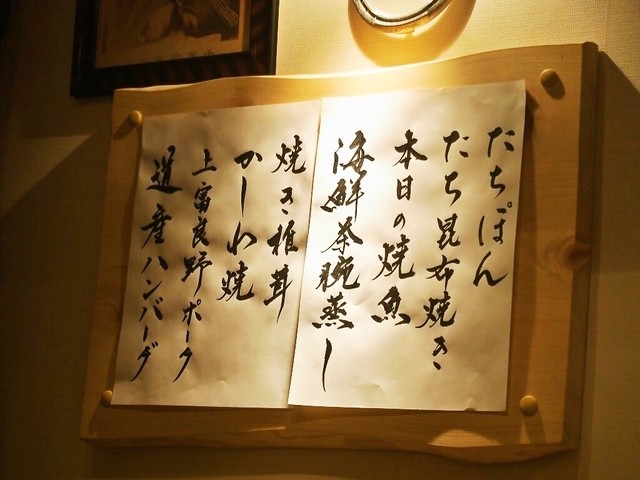 たちぽん
たち昆布焼き
本日の焼魚
海鮮茶腕蒸し
焼き椎茸
かしわ焼
上富良野ポーク
道産ハンバーグ